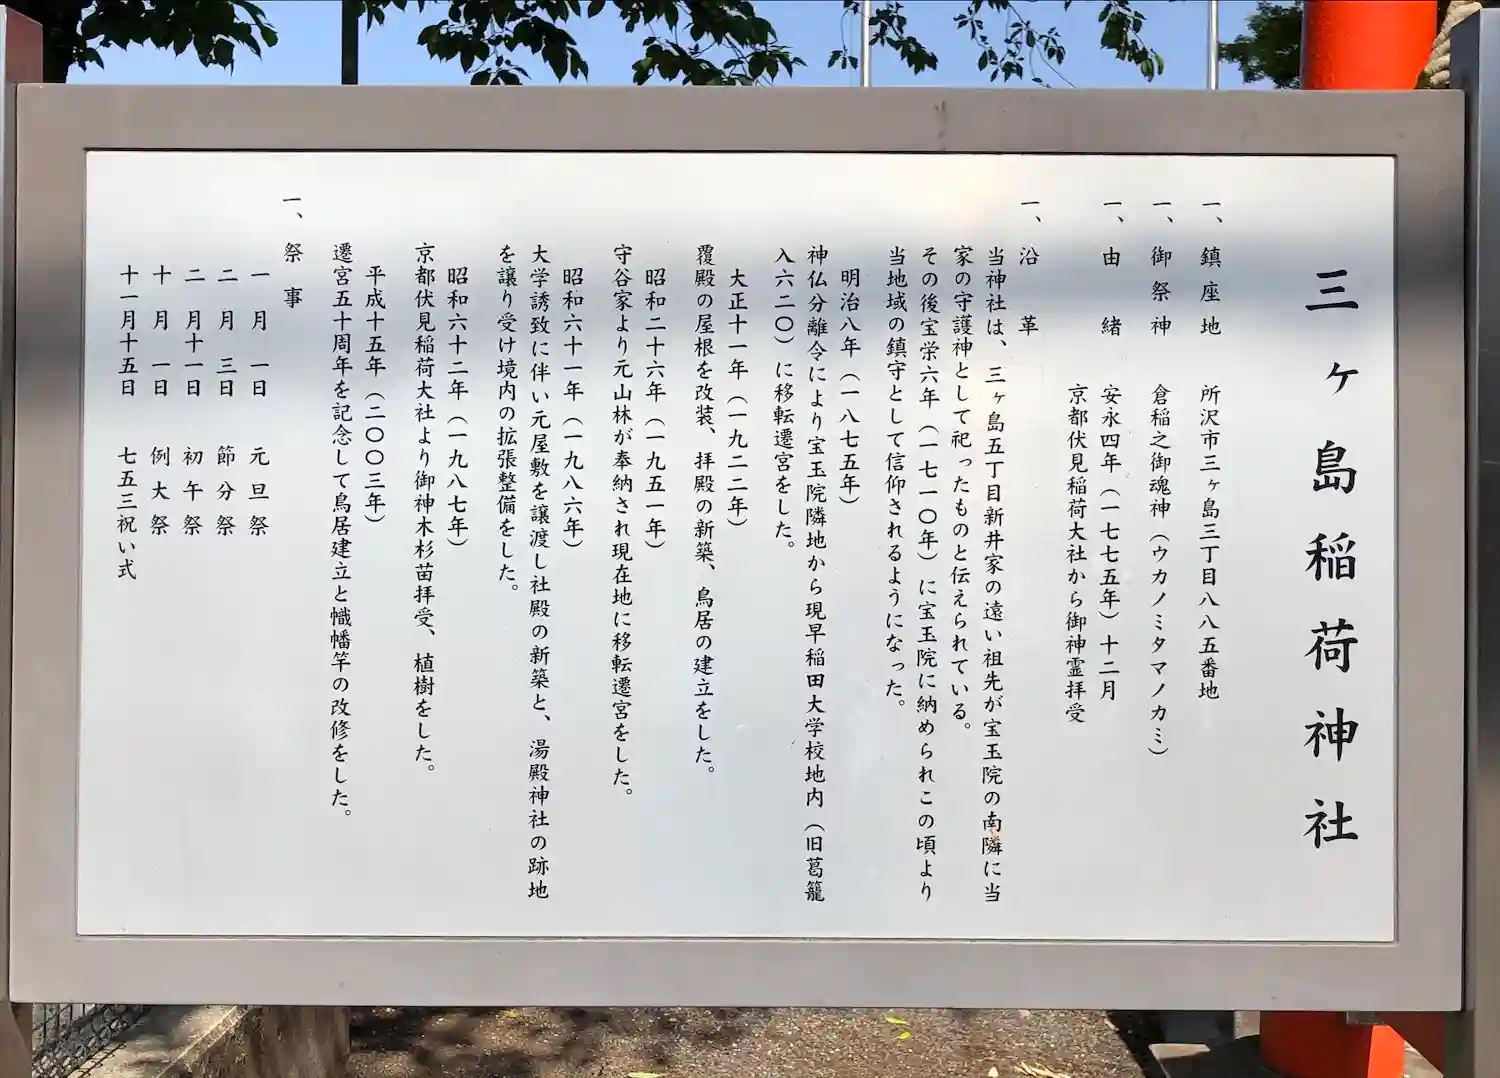 三ヶ島稲荷神社
一、鎮座地　所沢市三ヶ島三丁目八八五番地
一、御祭神　倉稲之御魂神（ウカノミタマノカミ）
一、由緒　安永四年（一七七五年）十二月
京都伏見稲荷大社から御神霊拝受
一、沿革
当神社は、三ヶ島五丁目新井家の遠い祖先が宝玉院の南隣に当
家の守護神として祀ったものと伝えられている。
その後宝栄六年（一七一〇年）に宝玉院に納められこの頃より
当地域の鎮守として信仰されるようになった。
明治八年（一八七五年）
神仏分離令により宝玉院隣地から現早稲田大学校地内（旧葛籠
入六二〇）に移転遷宮をした。
大正十一年（一九二二年）
覆殿の屋根を改装、拝殿の新築、鳥居の建立をした。
昭和二十六年（一九五一年）
守谷家より元山林が奉納され現在地に移転遷宮をした。
昭和六十一年（一九八六年）
大学誘致に伴い元屋敷を譲渡し社殿の新築と、湯殿神社の跡地
を譲り受け境内の拡張整備をした。
昭和六十二年（一九八七年）
京都伏見稲荷大社より御神木杉苗拝受、植樹をした。
平成十五年（二〇〇三年）
遷宮五十周年を記念して鳥居建立と幟幡竿の改修をした。
一、祭事
一月一日　元旦祭
二月三日　節分祭
二月十一日　初午祭
十月一日　例大祭
十一月十五日　七五三祝い式